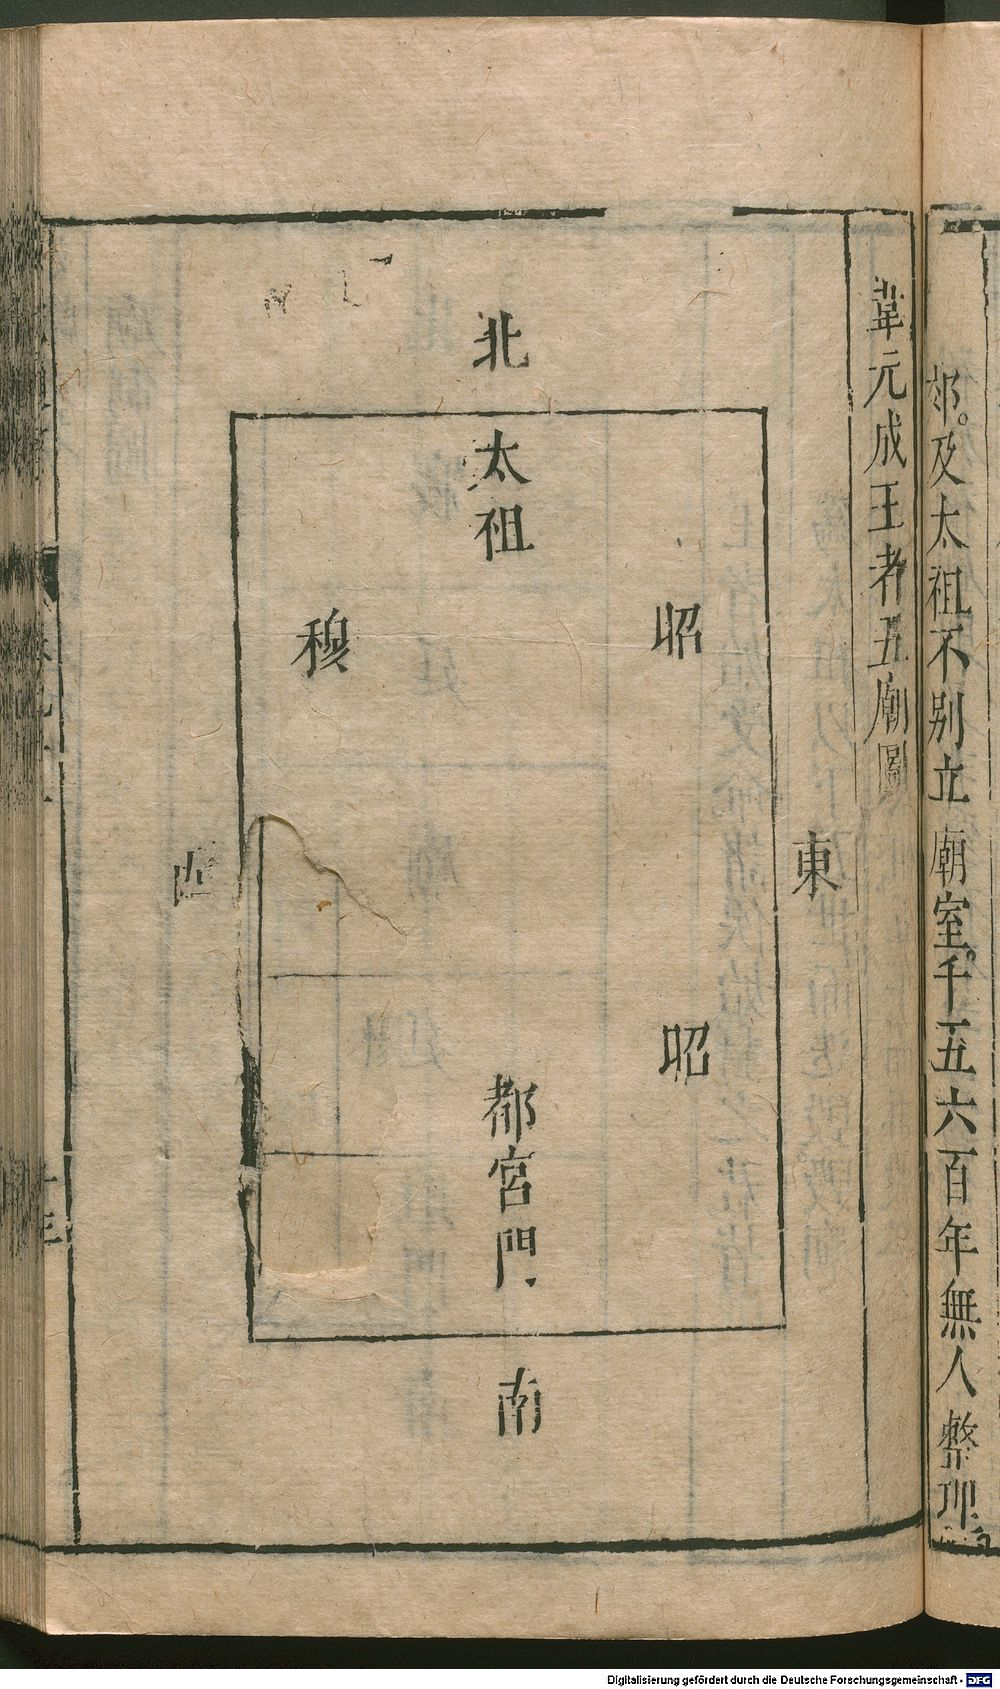 郊。及太祖不别立廟室。千五六百年無人整理
韋元成王者五廟圖
北
太祖
昭
穆
東
西
昭
都宮門
南
Digitalisierung gefördert durch die Deutsche Forschungsgemeinschaft - DFG